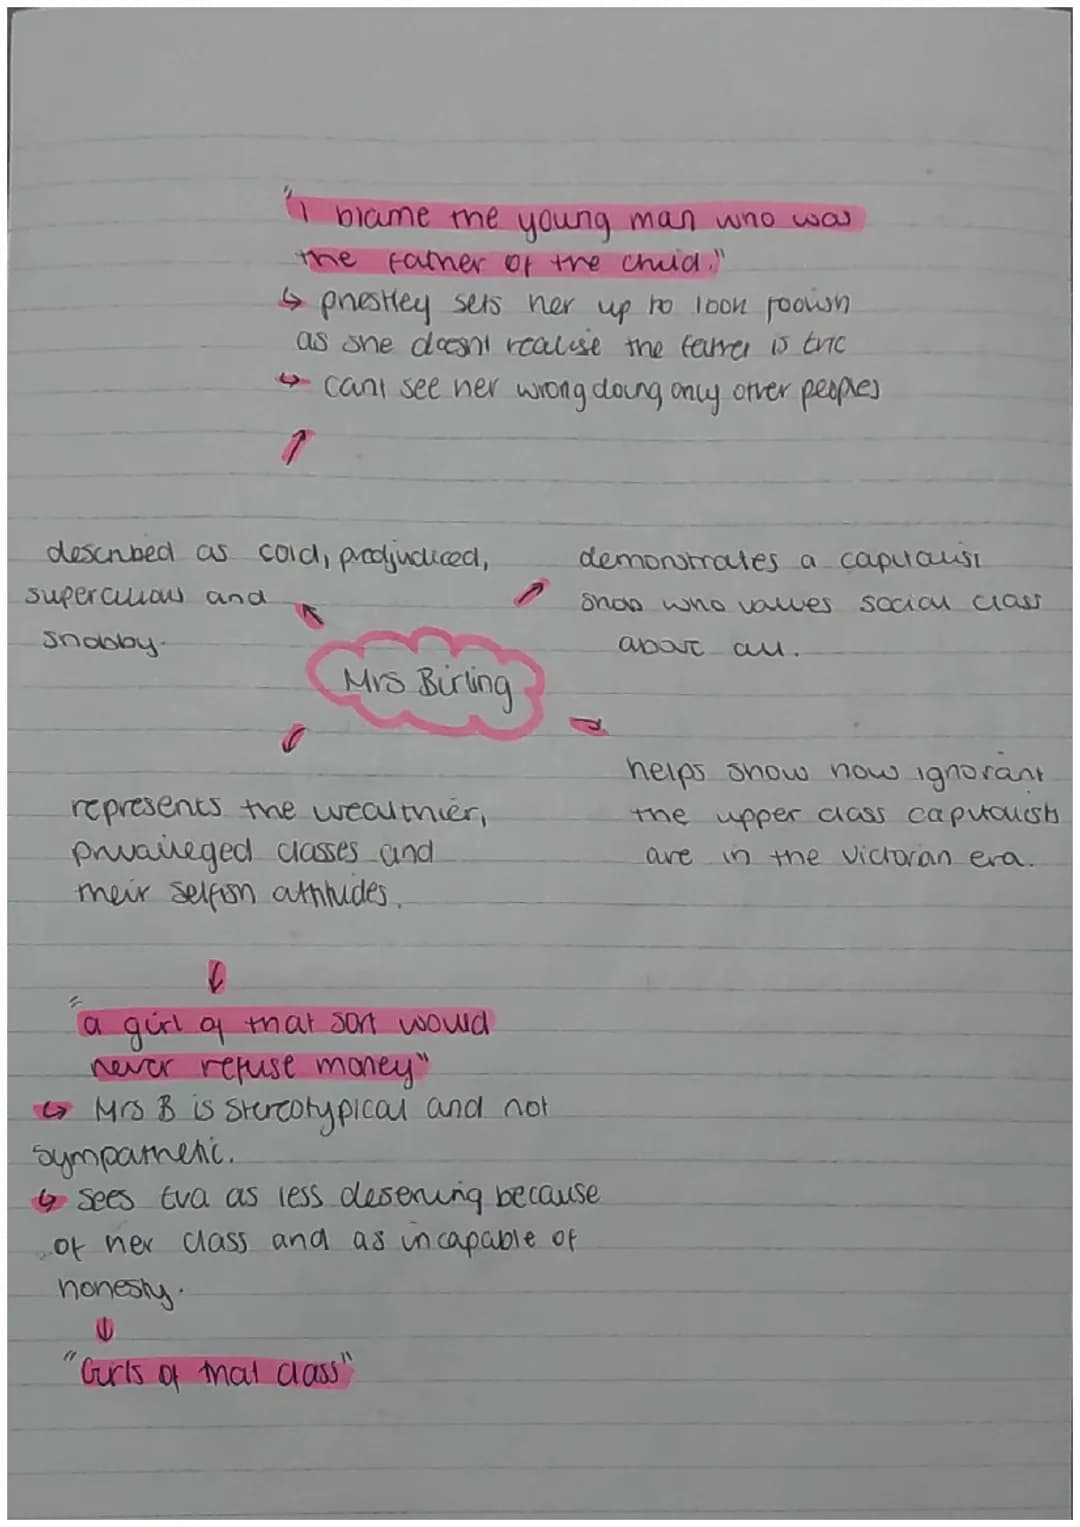 "I blame the young man who was
the father of the child."
↳ priestley sets her up to look foolish
as she doesnt realise the father is Eric
↳ cant see her wrong doing only other peoples
described as cold, prodjudiced,
supercilious and
snobby.
demonstrates a capitalist
snob who values social class
above all.
Mrs Birling
helps show how ignorant
the upper class capitalists
are in the victorian era.
represents the wealthier,
privaileged classes and
their selfish attitudes.
"a girl of that sort would
never refuse money"
↳ Mrs B is stereotypical and not
sympathetic.
↳ sees Eva as less deserving because
of her class and as incapable of
honesty.
"Girls of that class"